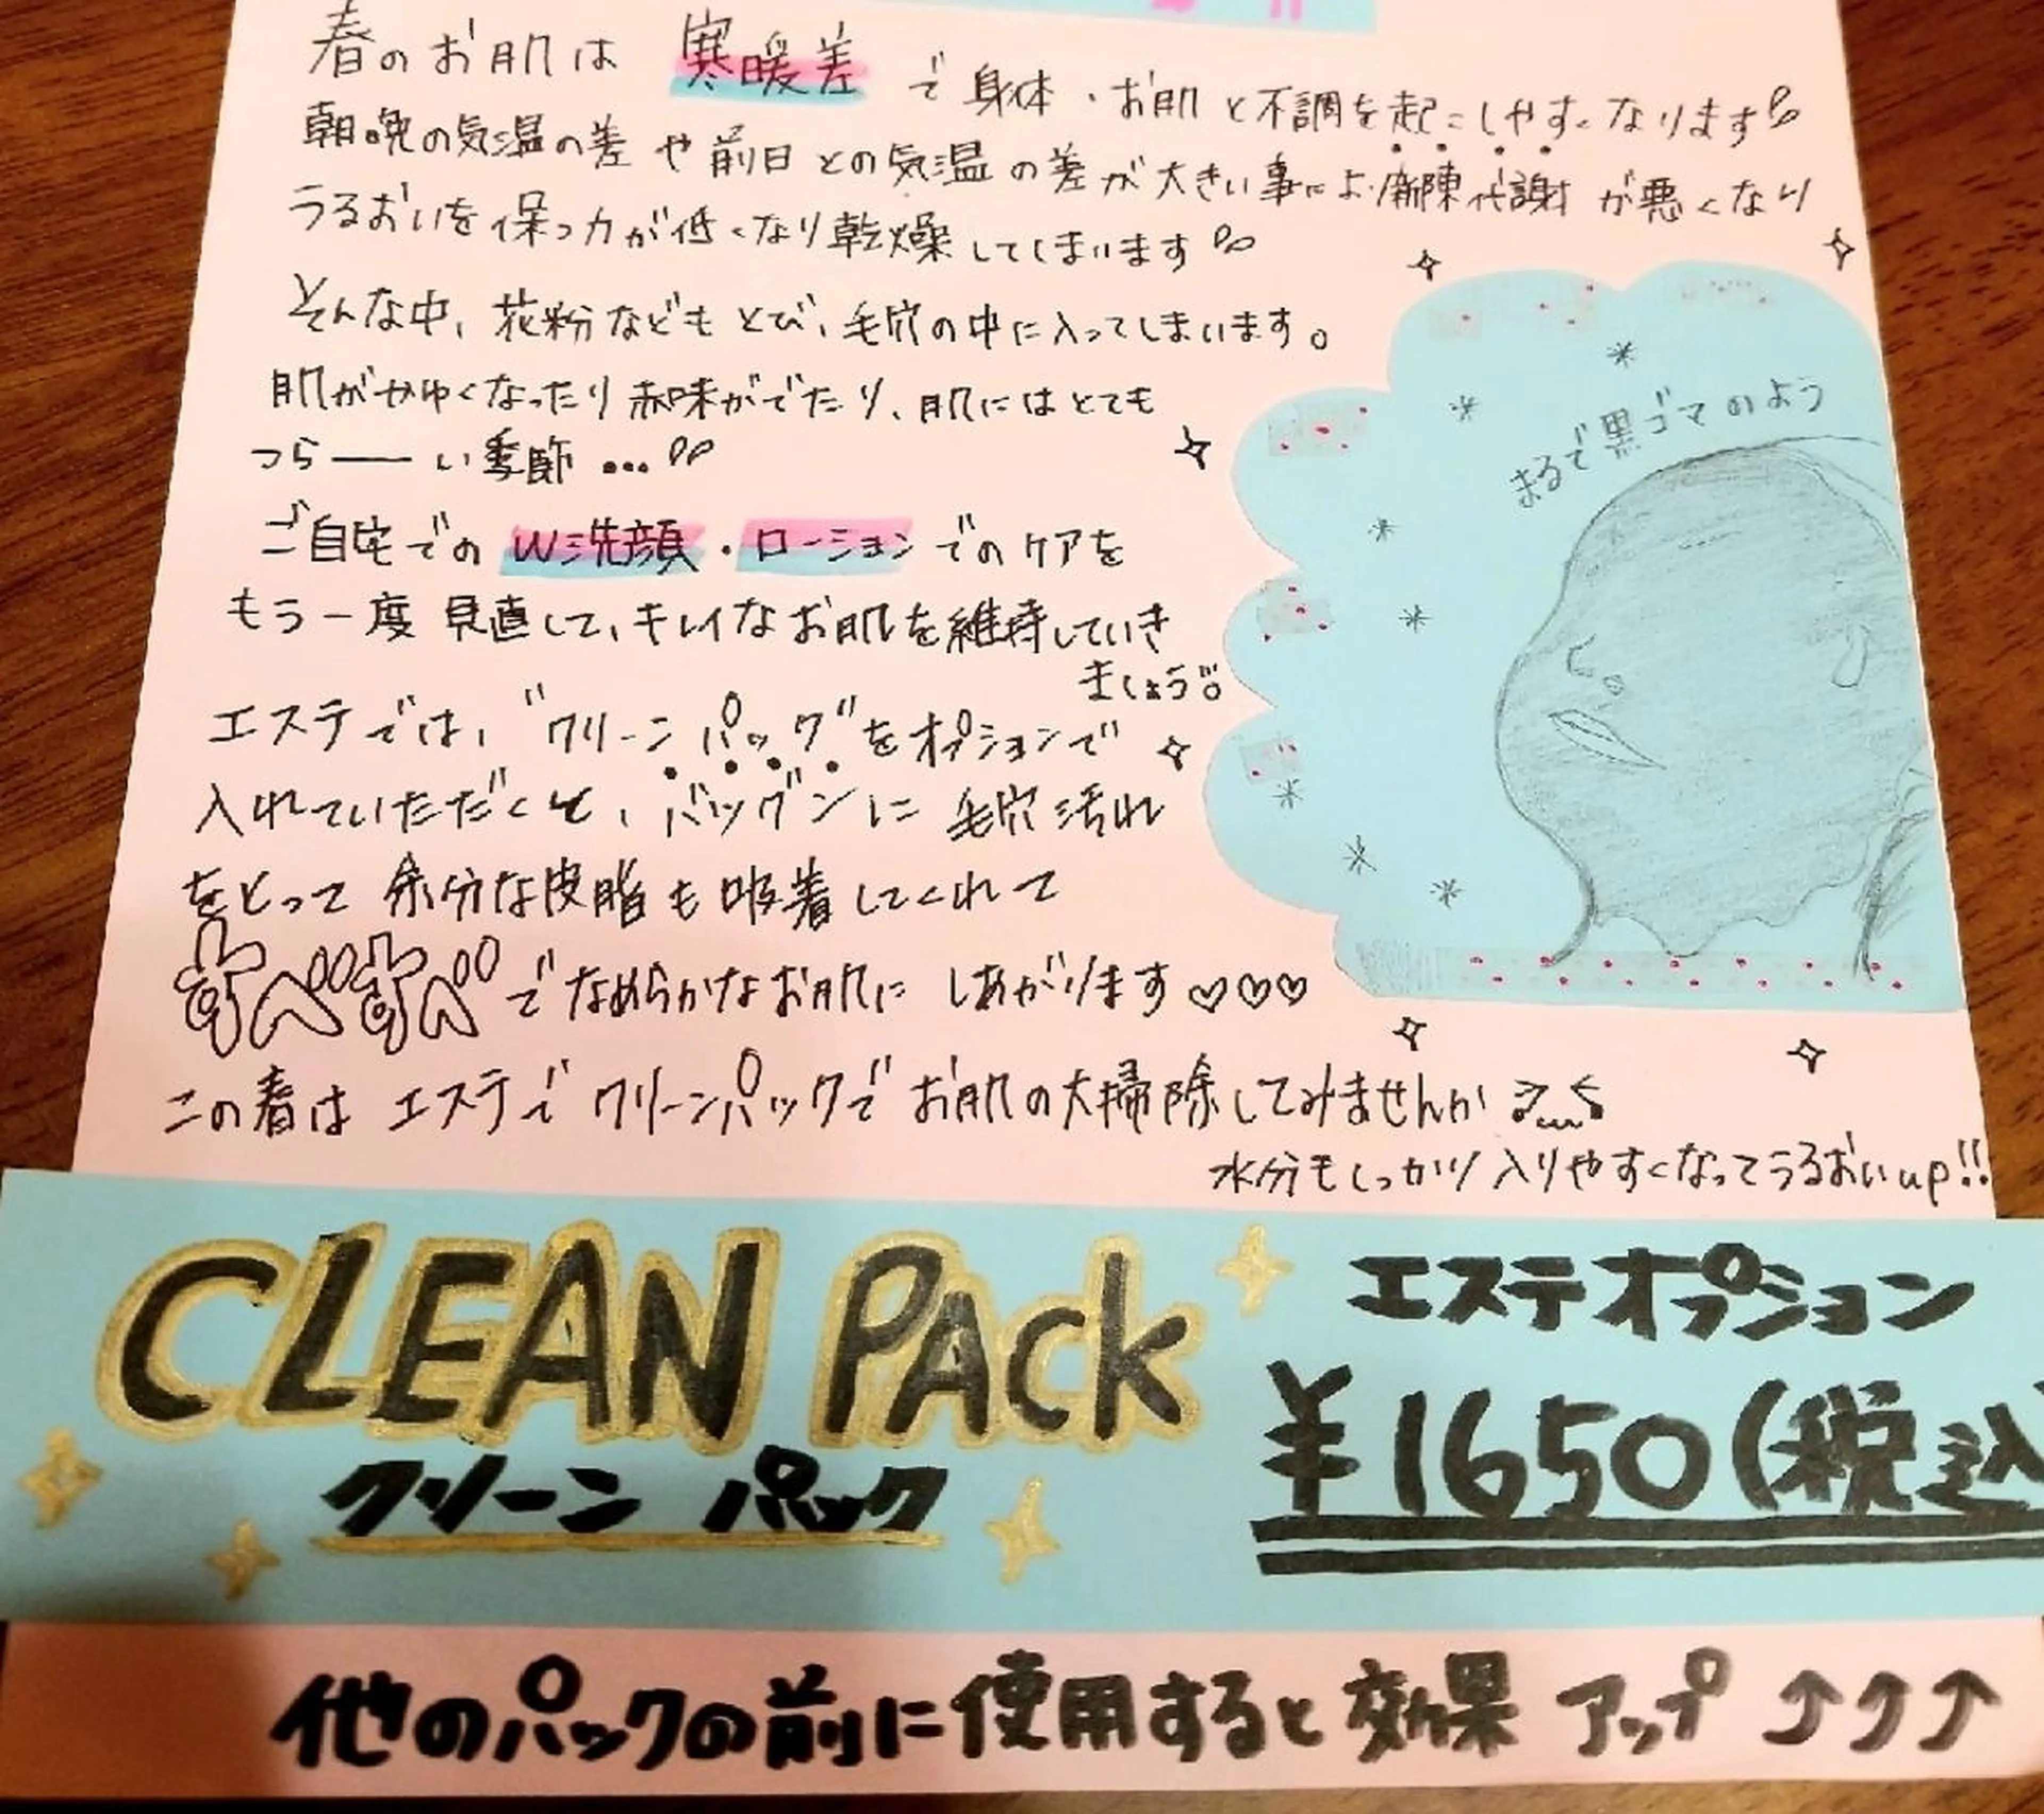 春のお肌は 寒暖差 で 身体・お肌 と不調を起こしやすくなります
朝晩の気温の差 や 前日 との気温 の 差が大きい事により新陳代謝 が悪くなり
うるおいを 保つ力が低くなり乾燥 してしまいます
そんな中、花粉などもとび、毛穴の中に入ってしまいます。
肌がかゆくなったり赤味がでたり、肌にはとても
つら――い季節 …
ご自宅での W洗顔・ローション でのケアを
もう一度 見直して、キレイなお肌を維持していき
ましょう
まるで黒ゴマのよう
エステでは、"クリーンパック"をオプションで
入れていただくと、バツグンに 毛穴汚れ
をとって 余分な皮脂も吸着してくれて
すべすべ でなめらかなお肌に しあがります♡♡♡
この春は エステで クリーンパックで お肌の大掃除してみませんか
水分もしっかり入りやすくなってうるおいup!!
CLEAN PAck
クリーン パック
エステオプション
¥1650(税込
他のパックの前に使用すると効果 アップ ↑↑↑